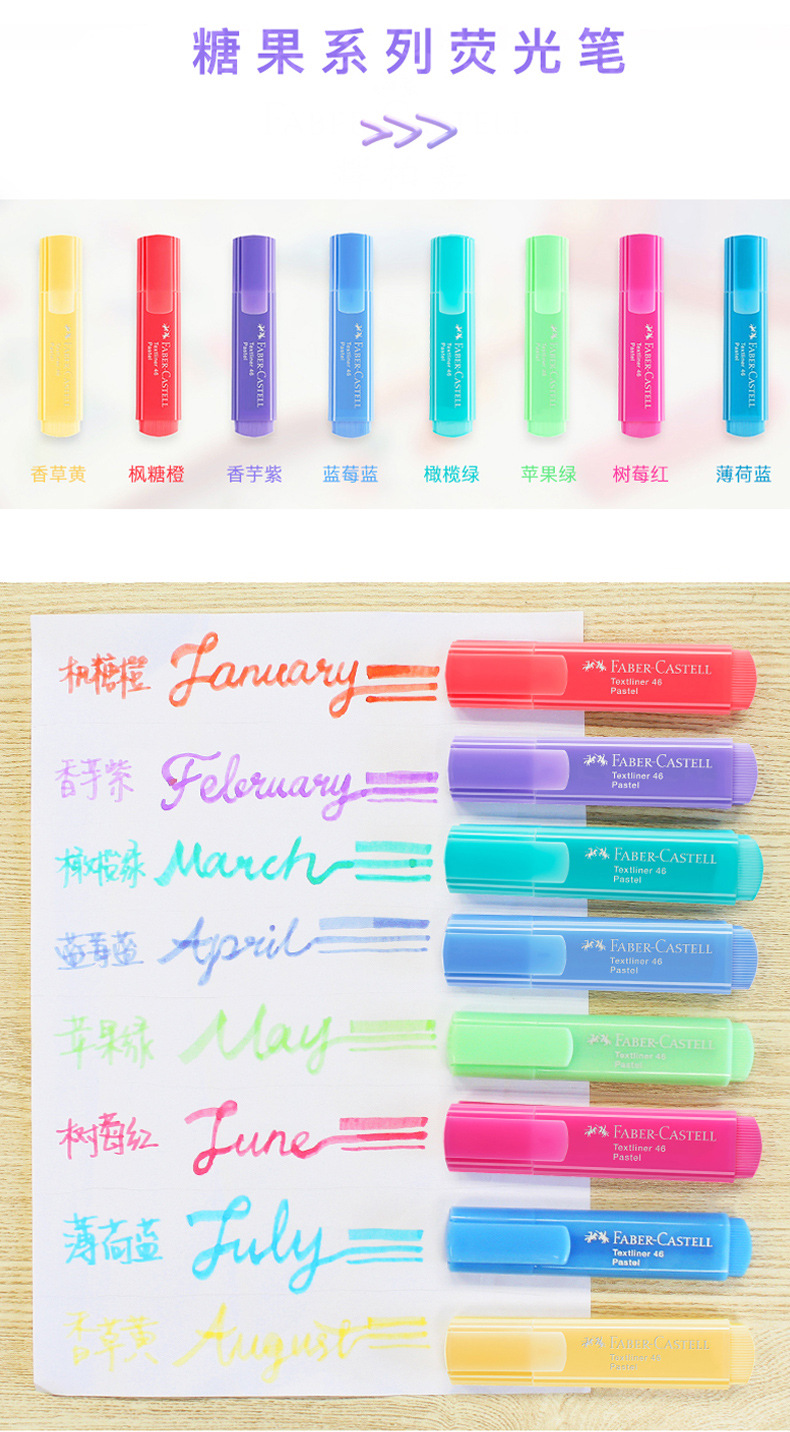 糖果系列荧光笔
FABER-CASTELL
Textliner 46
Pastel
FABER-CASTELL
Textliner 46
Pastel
FABER-CASTELL
Textliner 46
Pastel
FABER-CASTELL
Textliner 46
Pastel
FABER-CASTELL
Textliner 46
Pastel
FABER-CASTELL
Textliner 46
Pastel
FABER-CASTELL
Textliner 46
Pastel
FABER-CASTELL
Textliner 46
Pastel
香草黄 枫糖橙 香芋紫 蓝莓蓝 橄榄绿 苹果绿 树莓红 薄荷蓝
枫糖橙 January
FABER-CASTELL
Textliner 46
Pastel
香芋紫 February
FABER-CASTELL
Textliner 46
Pastel
橄榄绿 March
FABER-CASTELL
Textliner 46
Pastel
蓝莓蓝 April
FABER-CASTELL
Textliner 46
Pastel
苹果绿 May
FABER-CASTELL
Textliner 46
Pastel
树莓红 June
FABER-CASTELL
Textliner 46
Pastel
薄荷蓝 July
FABER-CASTELL
Textliner 46
Pastel
香草黄 August
FABER-CASTELL
Textliner 46
Pastel